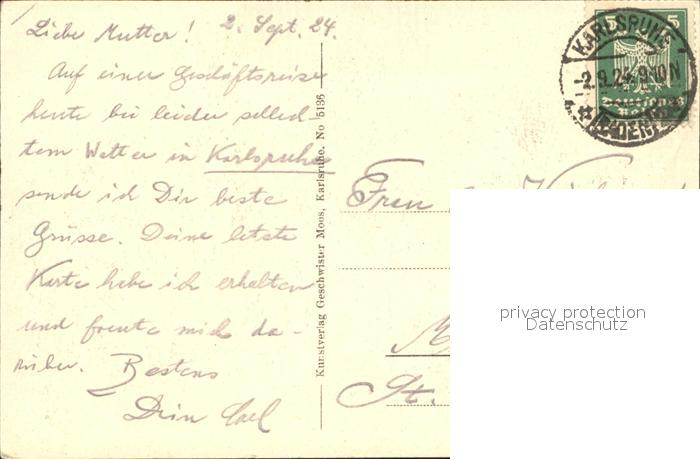 Liebe Mutter! 2. Sept. 24.
Auf einer Geschäftsreise
heute bei leider schlech-
tem Wetter in Karlsruhe
sende ich Dir beste
Grüsse. Deine letzte
Karte habe ich erhalten
und freute mich da-
rüber. Bestens
Dein
Kunstverlag Geschwister Moos, Karlsruhe. No 5136
5 5
Deutsches
Reich
KARLSRUHE
-2.9.24. 9-10 N
(BADEN)
Frau
St.
privacy protection
Datenschutz